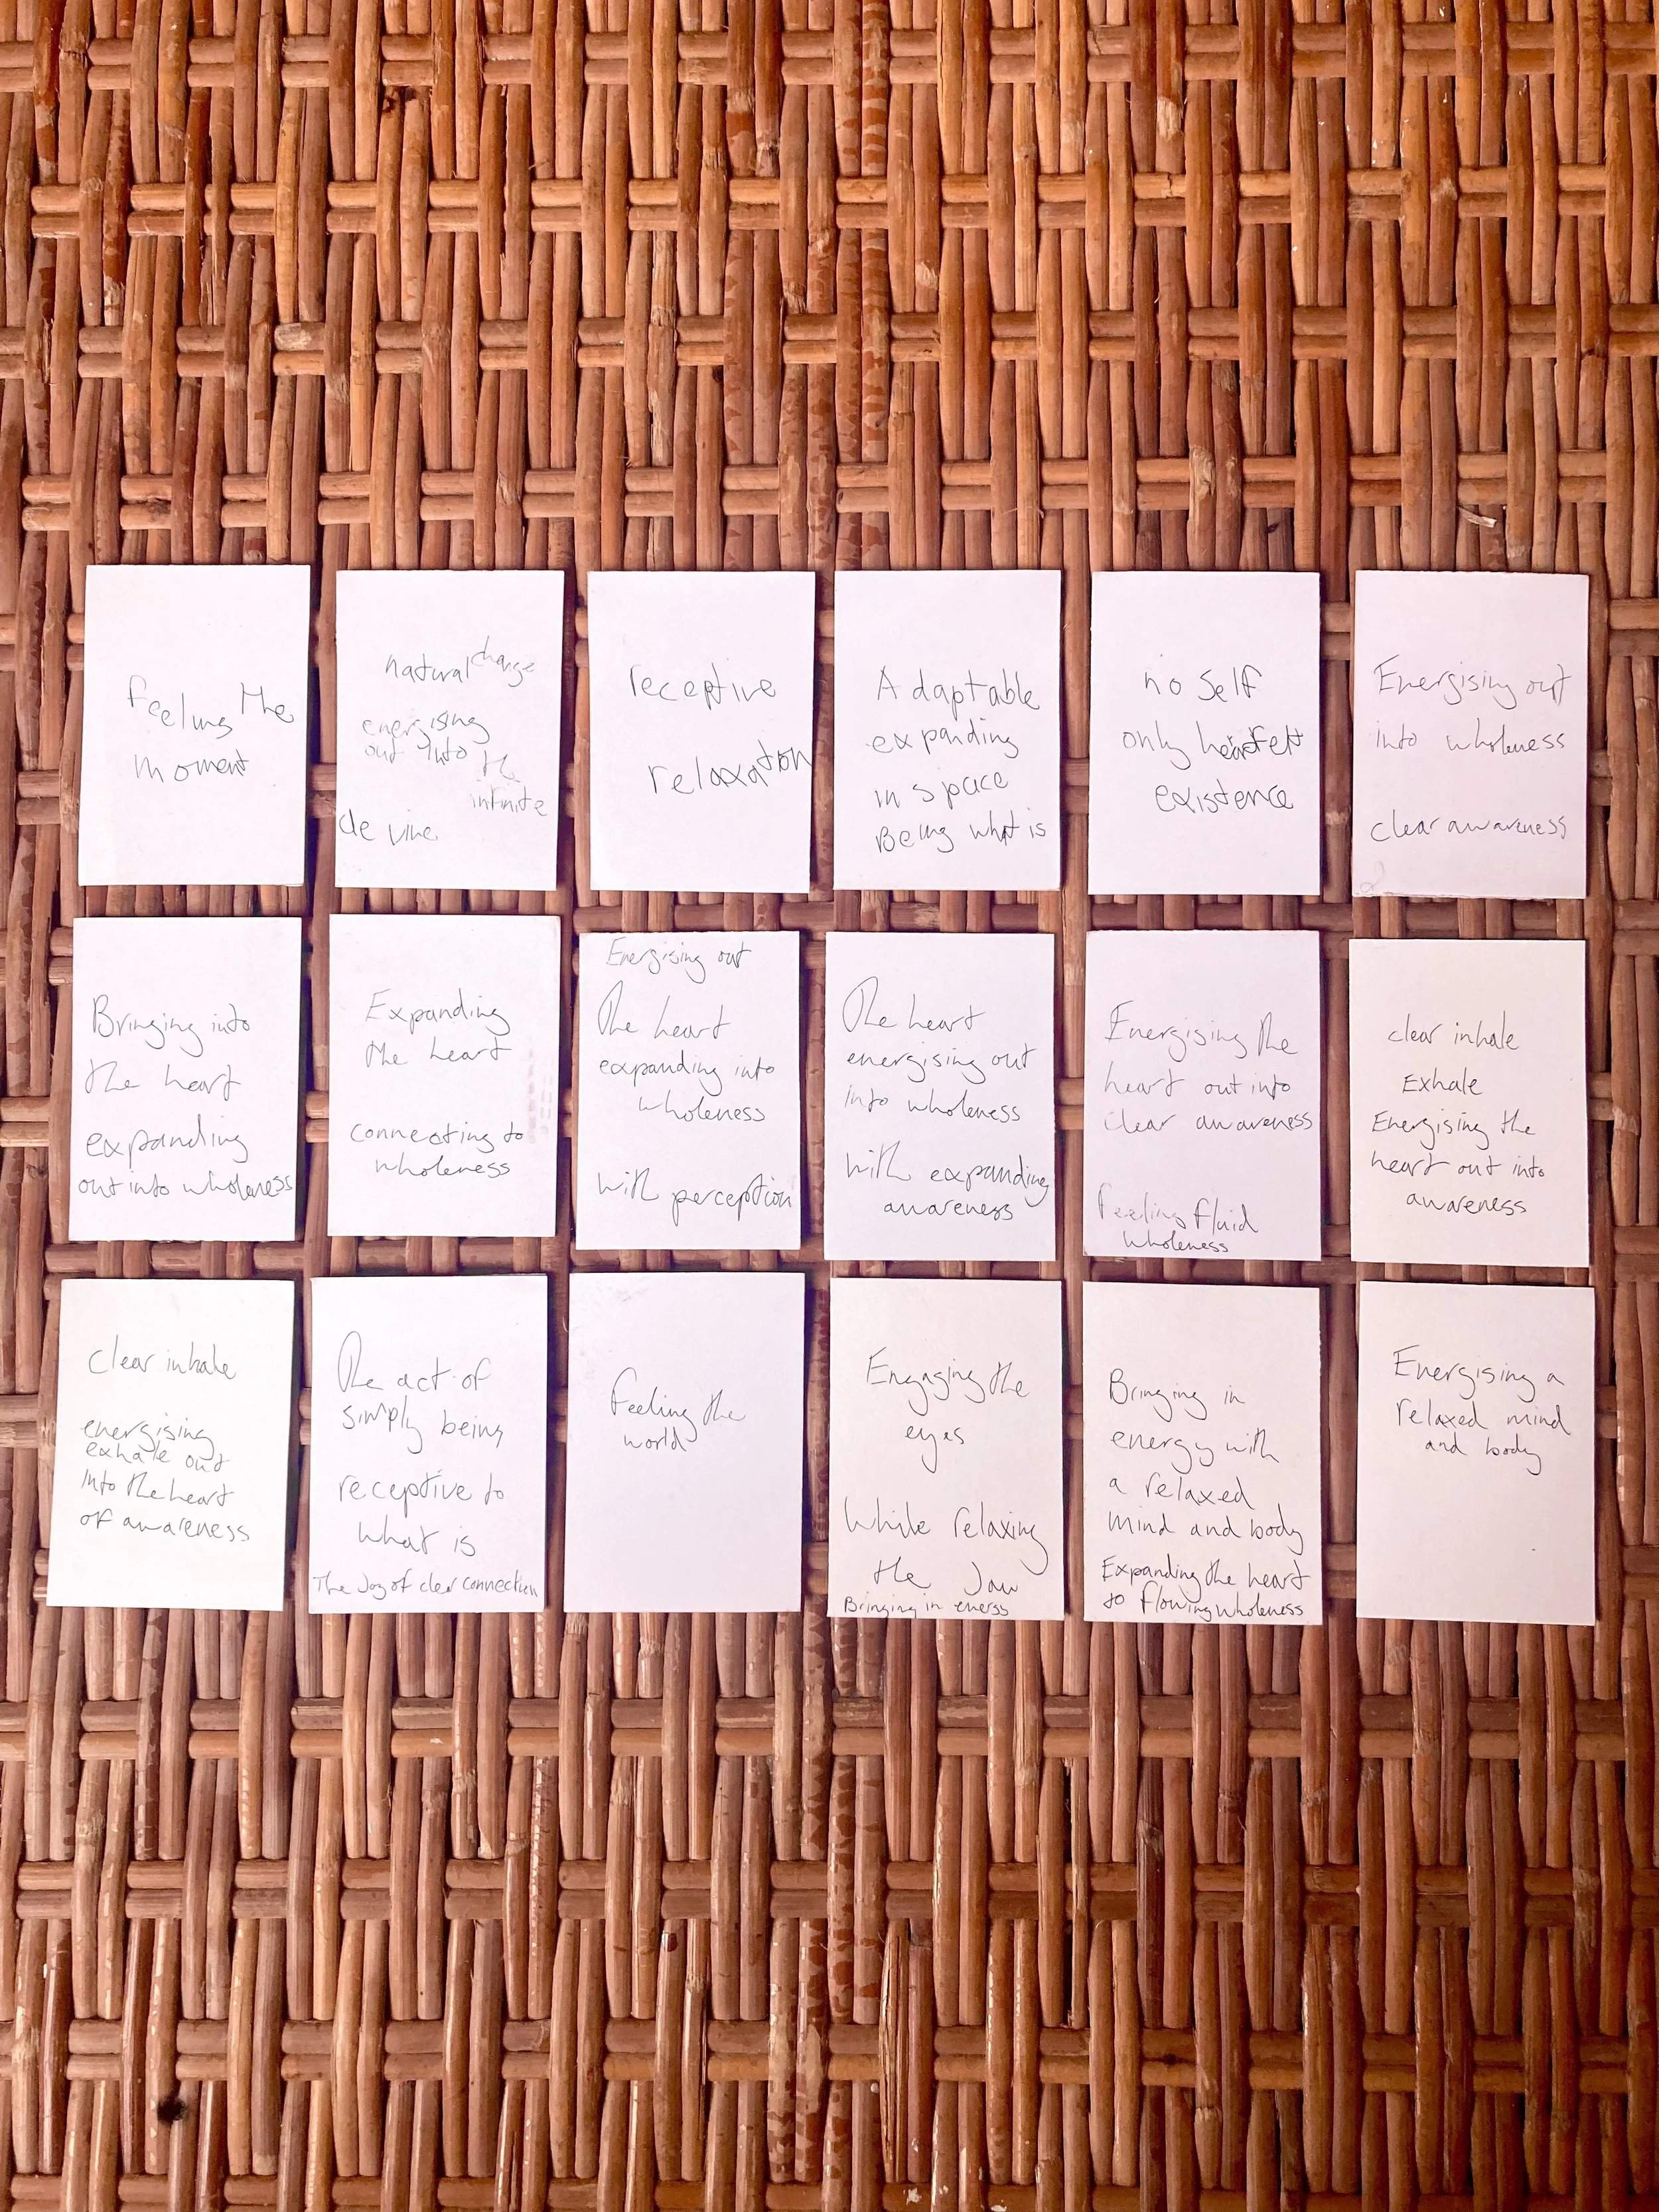 feeling the
moment
natural change
energising
out into the
infinite
devine
receptive
relaxation
Adaptable
expanding
in space
Being what is
no self
only heartfelt
existence
Energising out
into wholeness
clear awareness
Bringing into
the heart
expanding
out into wholeness
Expanding
the heart
connecting to
wholeness
Energising out
The heart
expanding into
wholeness
with perception
The heart
energising out
into wholeness
with expanding
awareness
Energising the
heart out into
clear awareness
feeling fluid
wholeness
clear inhale
Exhale
Energising the
heart out into
awareness
clear inhale
energising
exhale out
into the heart
of awareness
The act of
simply being
receptive to
what is
The Joy of clear connection
feeling the
world
Engaging the
eyes
While relaxing
the Jaw
Bringing in energy
Bringing in
energy with
a relaxed
mind and body
Expanding the heart
to flowing wholeness
Energising a
relaxed mind
and body